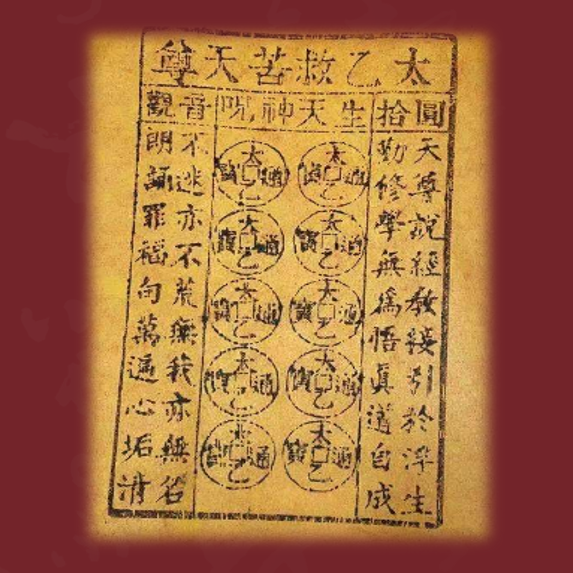 太乙救苦天尊
圓拾
生天神咒
音觀
天尊說經教接引於浮生
勤修學無為悟真道自成
太乙通寶
太乙通寶
太乙通寶
太乙通寶
太乙通寶
太乙通寶
太乙通寶
太乙通寶
太乙通寶
太乙通寶
不迷亦不荒無我亦無名
朗誦罪福句萬遍心垢清